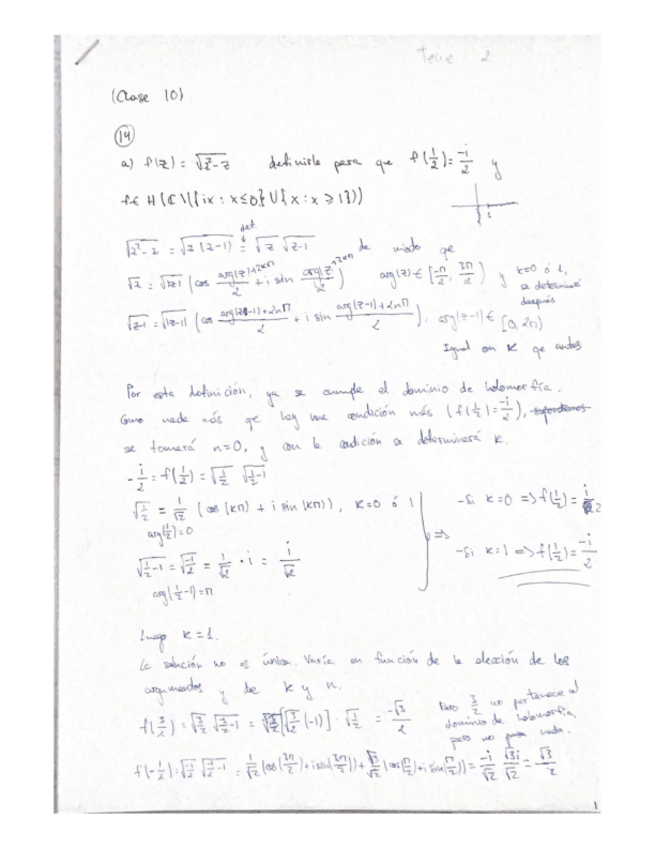 Tema 2
(Clase 10)
14
a) f(z) = √(z²-z) definirla para que f(1/2) = -i/2 y
f∈ H(ℂ\({ix : x≤0}∪{x : x≥1}))
√(z²-z) = √(z(z-1)) =(def.) √z √(z-1) de modo que
√z = √|z| (cos (arg(z)+2kπ)/2 + i sin (arg(z)+2kπ)/2) arg(z)∈[-π/2, 3π/2) y k=0 ó 1, se determinará después
√(z-1) = √|z-1| (cos (arg(z-1)+2nπ)/2 + i sin (arg(z-1)+2nπ)/2), arg(z-1)∈[0, 2π)
Igual con k qe antes
Por esta definición, ya se cumple el dominio de holomorfía.
Como nada más qe hay una condición más (f(1/2) = -i/2),
se tomará n=0, y con la condición se determinará k.
-i/2 = f(1/2) = √(1/2) √(1/2-1)
√(1/2) = 1/√2 (cos(kπ) + i sin(kπ)), k=0 ó 1
arg(1/2)=0
- Si k=0 => f(1/2) = i/2
√(1/2-1) = √(-1/2) = 1/√2 · i = i/√2
arg(1/2-1)=π
=>
- Si k=1 => f(1/2) = -i/2
Luego k=1.
La solución no es única. Varía en función de la elección de los
argumentos y de k y n.
f(3/2) = √(3/2) √(3/2-1) = [√(3/2) (-1)] · √(1/2) = -√3/2
Pero 3/2 no pertenece al
dominio de holomorfía,
pero no pasa nada.
f(-1/2) = √(-1/2) √(-1/2-1) = 1/√2 (cos(3π/2)+i sin(3π/2)) + √3/√2 (cos(π/2)+i sin(π/2)) = -i/√2 √3i/√2 = √3/2
1